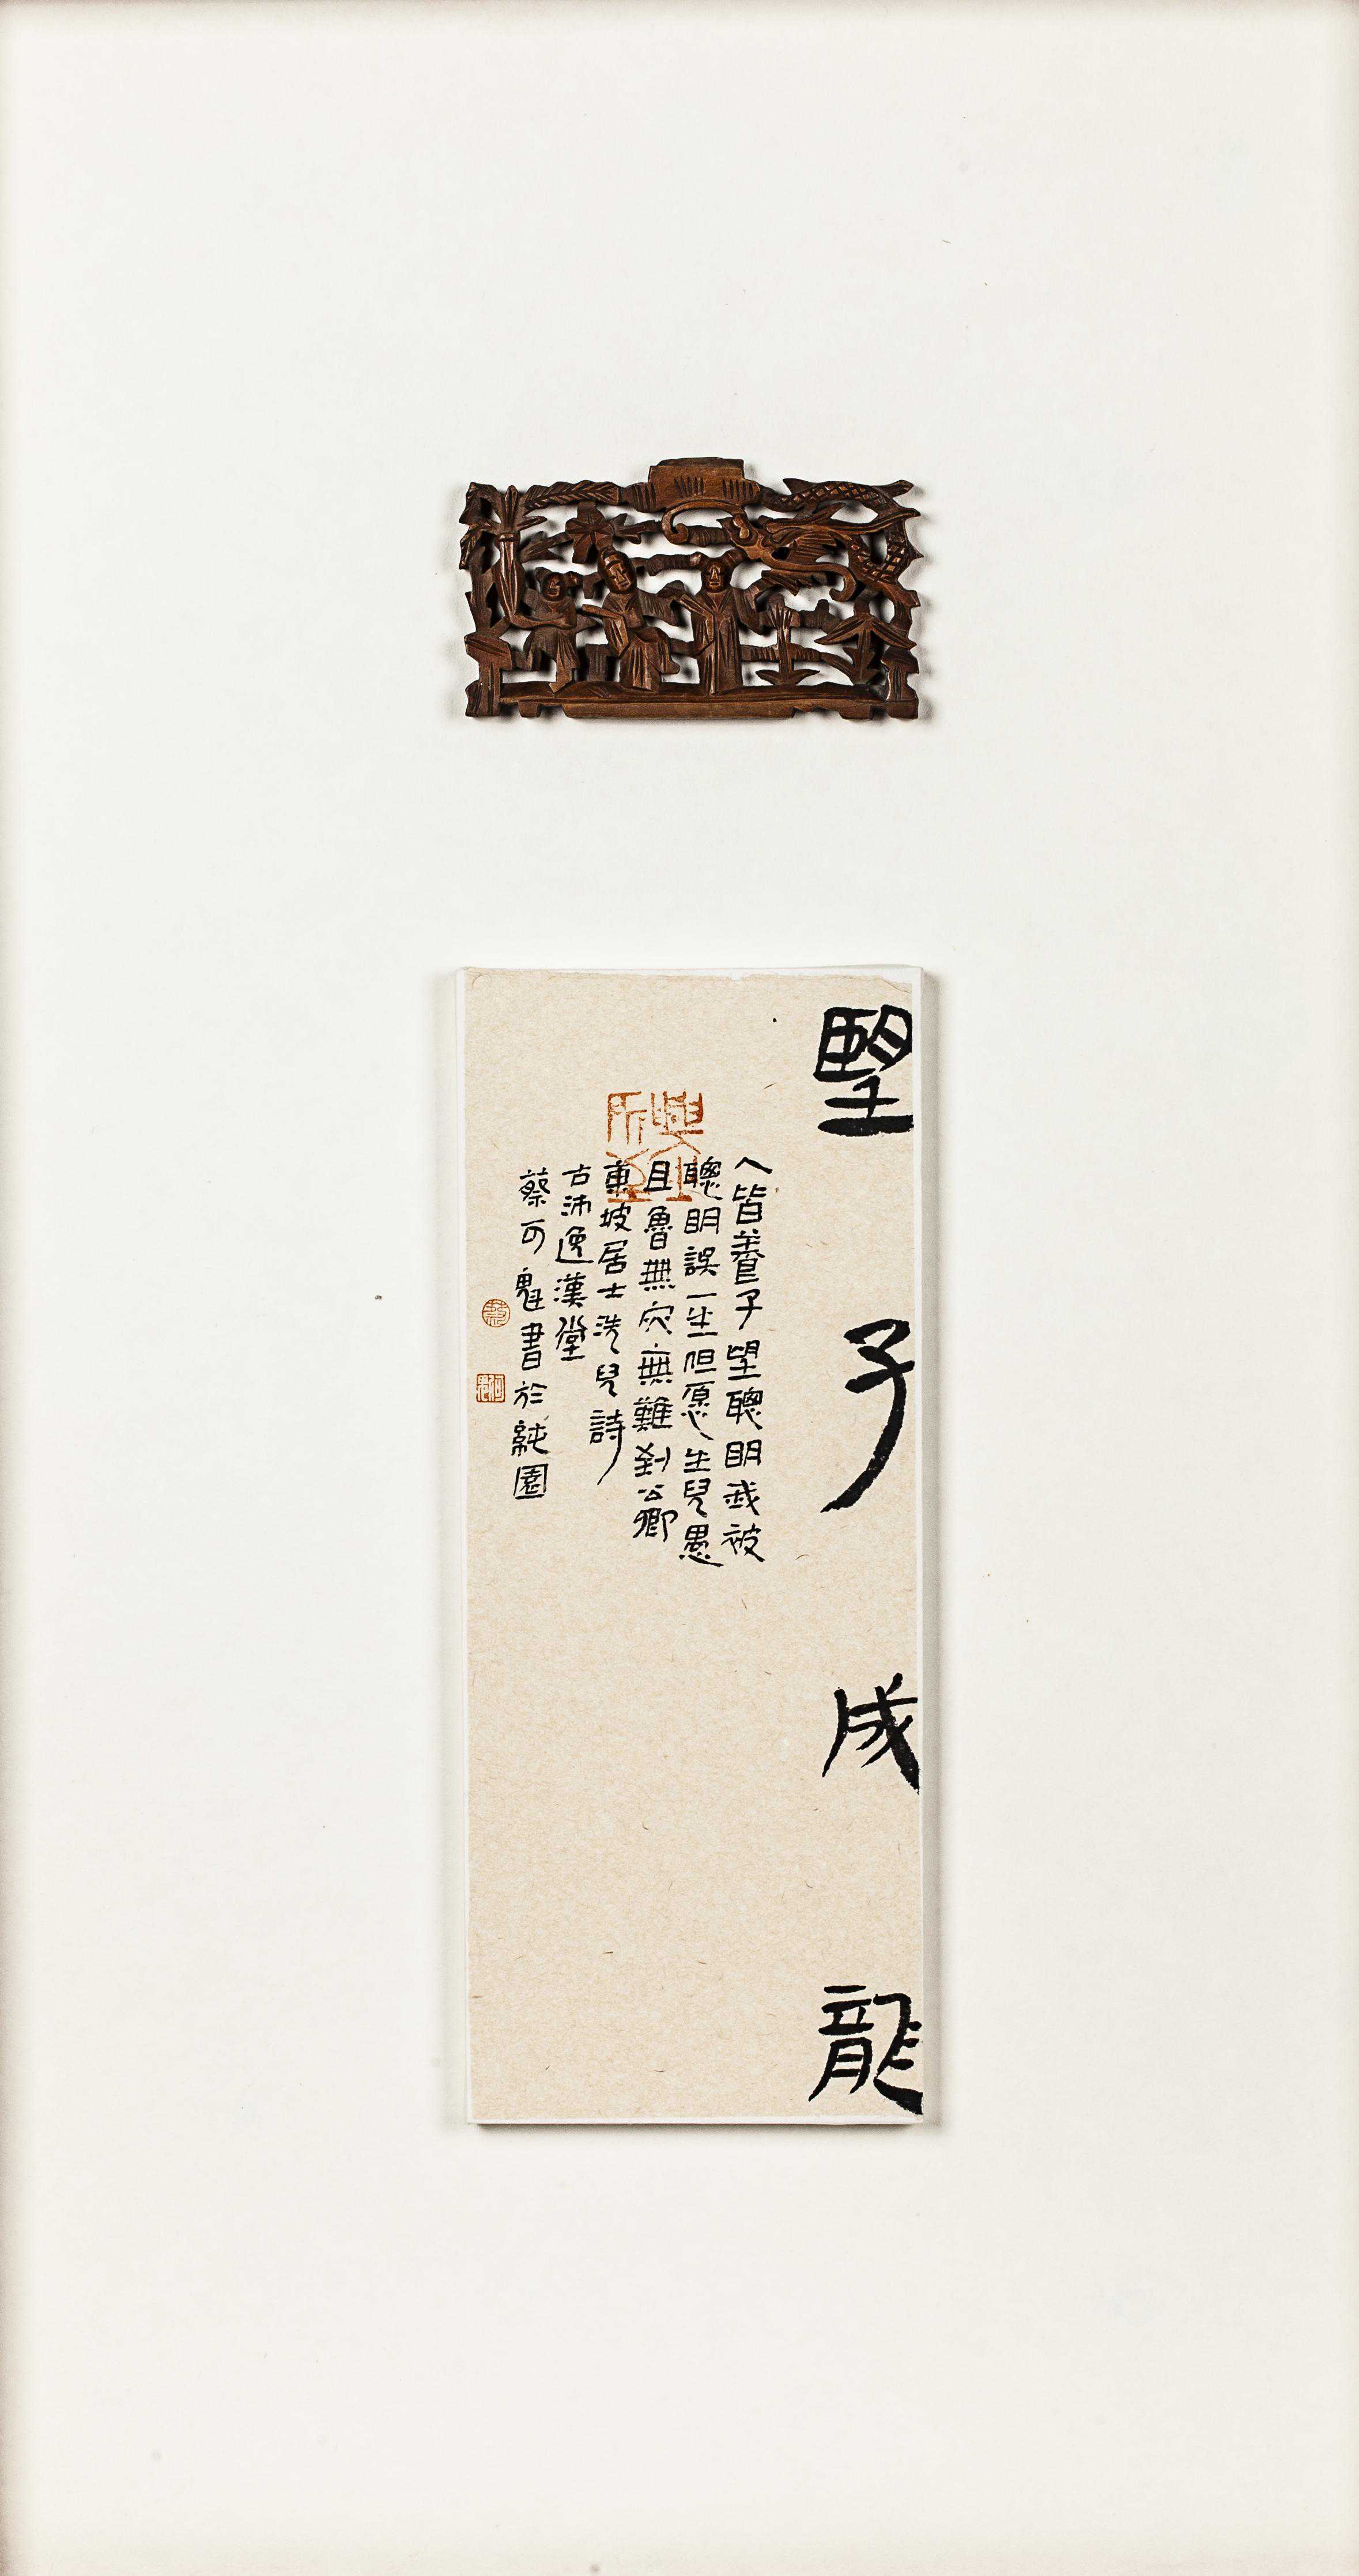 望子成龍
人皆養子望聰明我被
聰明誤一生但愿生兒愚
且魯無灾無難到公卿
東坡居士洗兒詩
古沛逸漢堂
蔡可魁書於純園